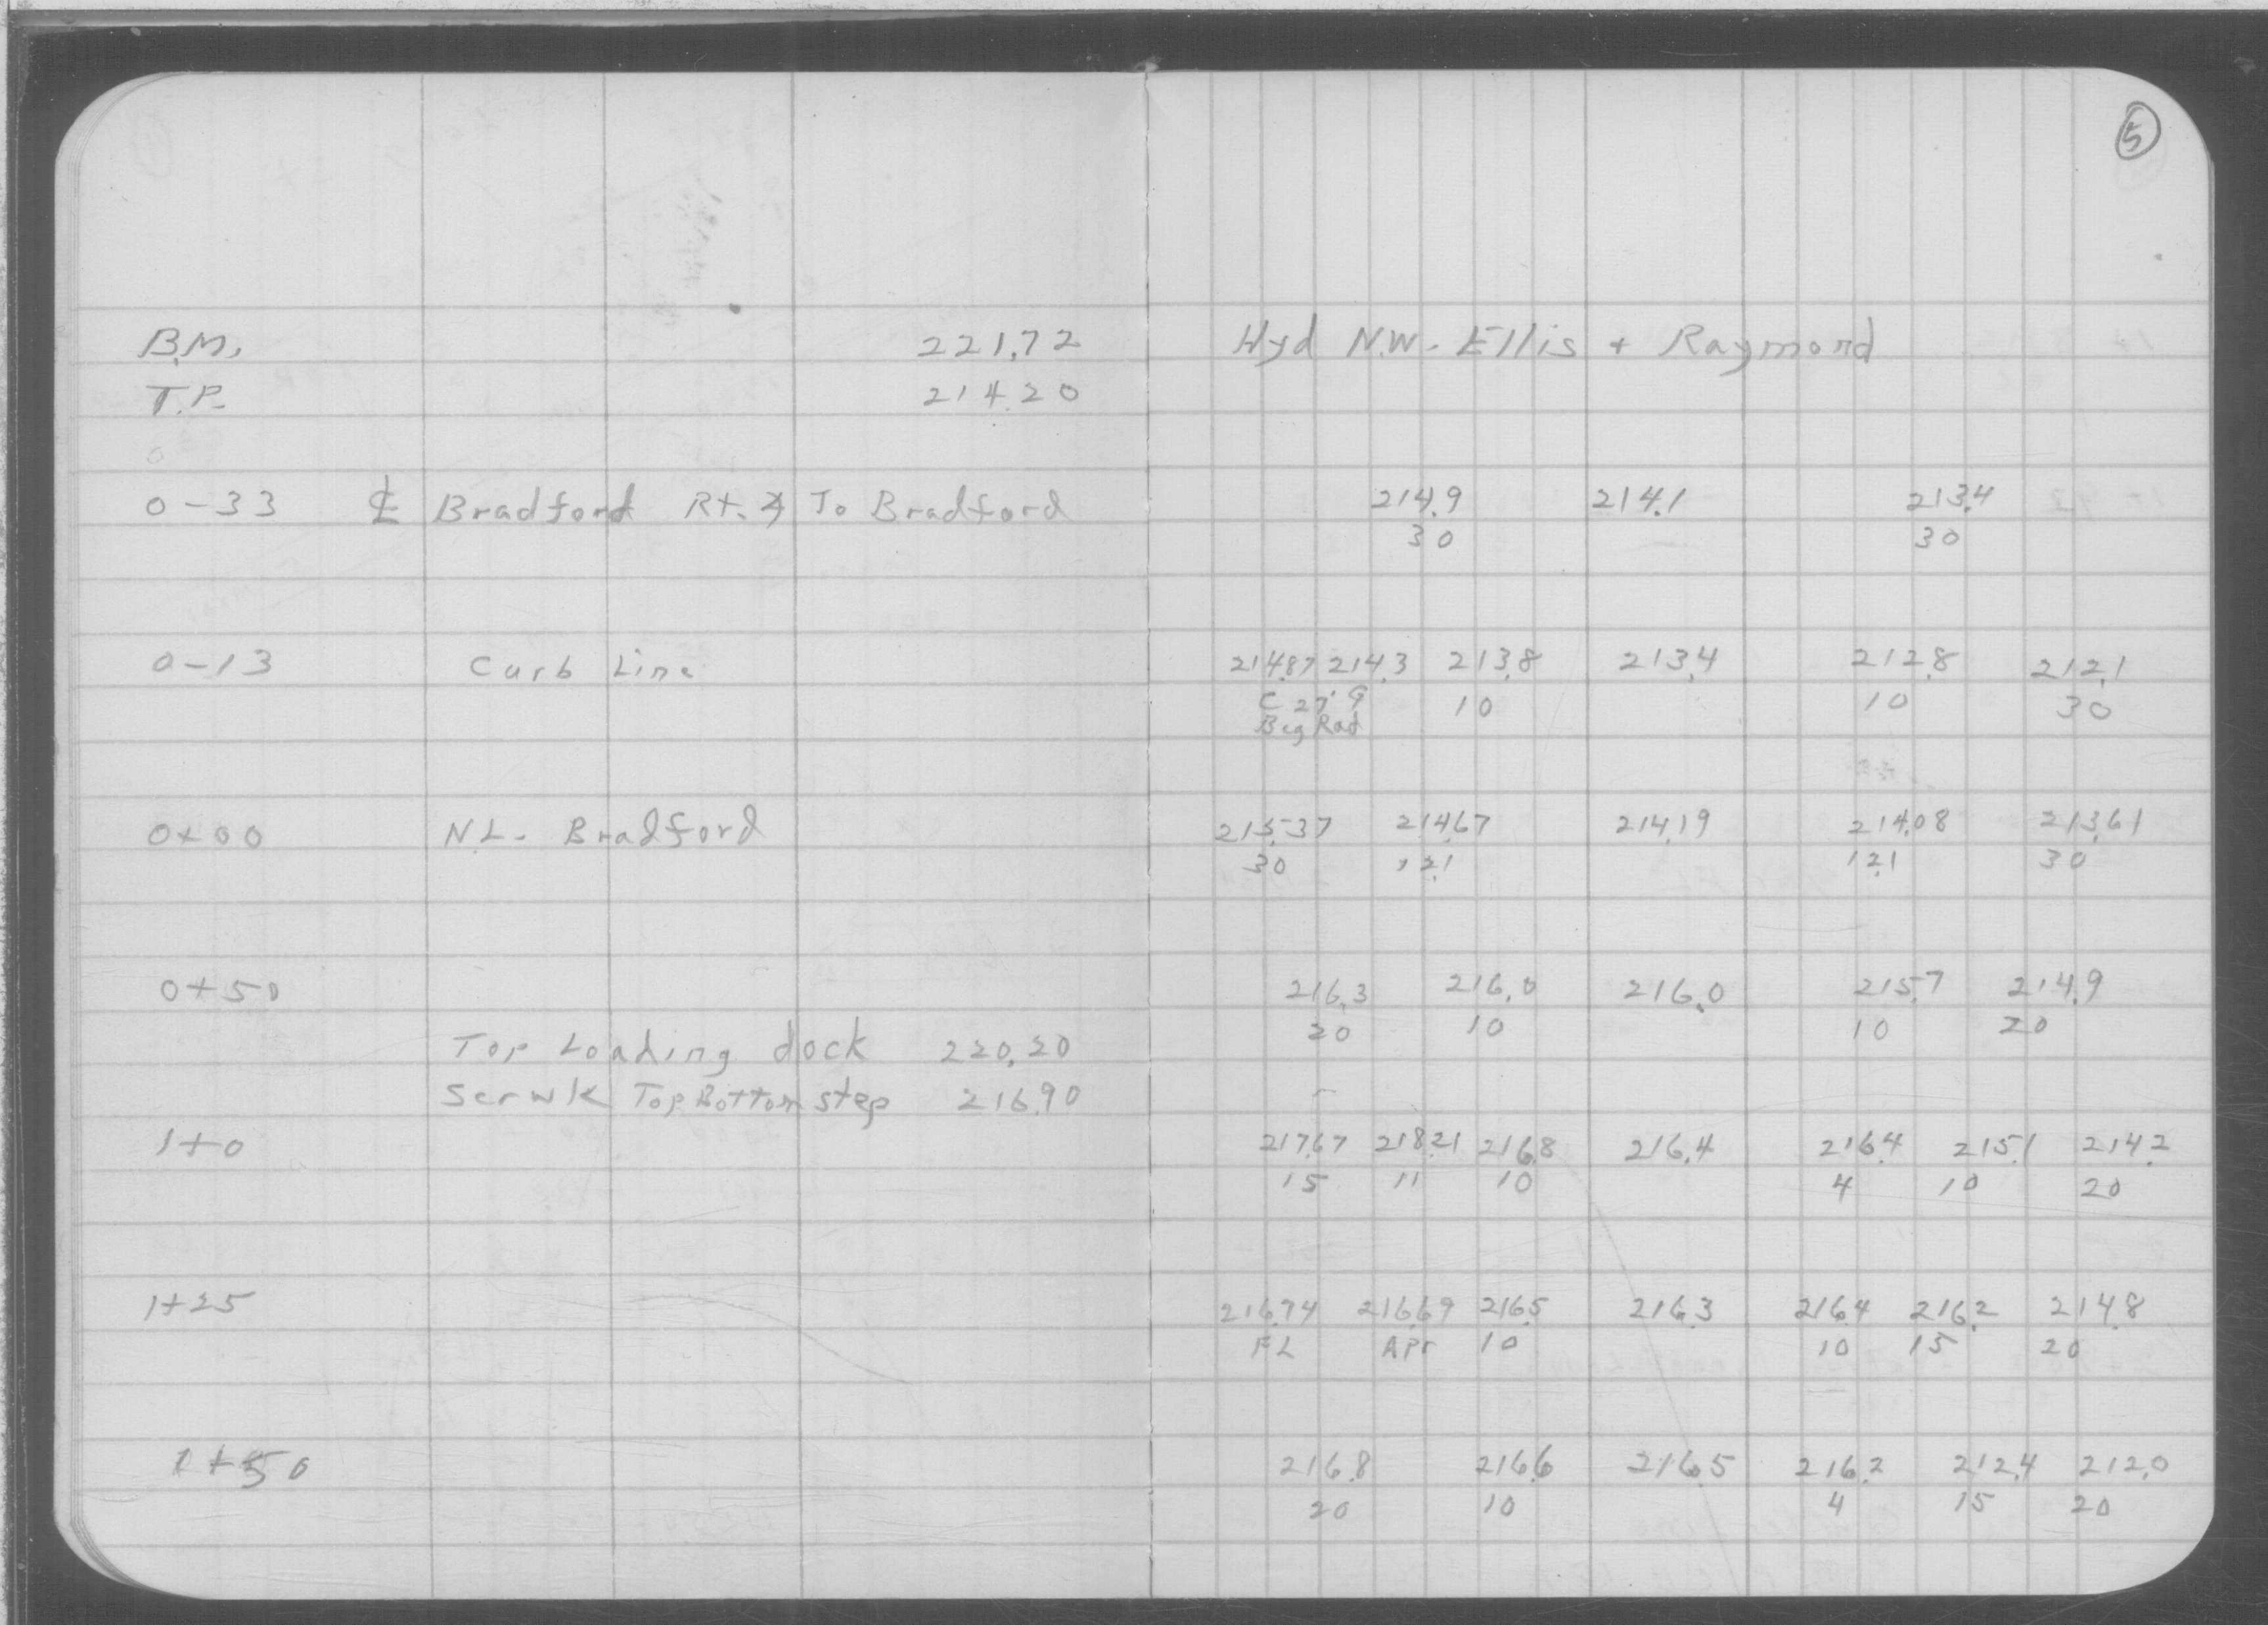 5
B.M. 221.72 Hyd N.W. Ellis + Raymond
T.P. 214.20
0
0-33 ℄ Bradford Rt. ∡ To Bradford 214.9 214.1 213.4
30 30
0-13 Curb Line 214.87 214.3 213.8 213.4 212.8 212.1
C 27' G 10 10 30
Beg Rad
0+00 N.L. Bradford 215.37 214.67 214.19 214.08 213.61
30 12.1 12.1 30
0+50 216.3 216.0 216.0 215.7 214.9
20 10 10 20
Top Loading dock 220.20
Serwk Top Bottom step 216.90
1+0 217.67 218.21 216.8 216.4 216.4 215.1 214.2
15 11 10 4 10 20
1+25 216.74 216.69 216.5 216.3 216.4 216.2 214.8
FL Apr 10 10 15 20
1+50 216.8 216.6 216.5 216.2 212.4 212.0
20 10 4 15 20